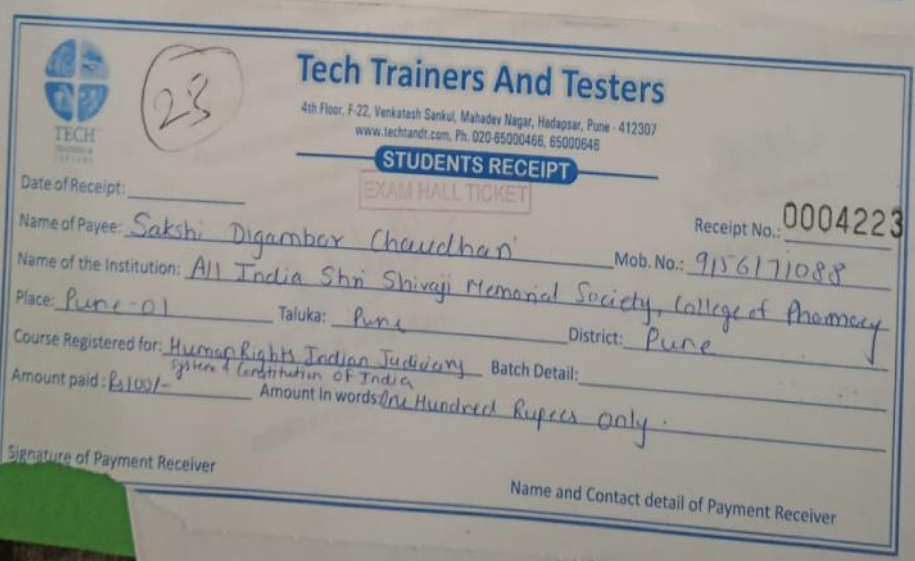 TECH
TRAINERS &
TESTERS
23
Tech Trainers And Testers
4th Floor, F-22, Venkatesh Sankul, Mahadev Nagar, Hadapsar, Pune - 412307
www.techtandt.com, Ph. 020-65000466, 65000646
STUDENTS RECEIPT
EXAM HALL TICKET
Date of Receipt:
Receipt No.: 0004223
Name of Payee: Sakshi Digambar Chaudhari
Mob. No.: 9156171088
Name of the Institution: All India Shri Shivaji Memorial Society, College of Pharmacy
Place: Pune-01 Taluka: Pune District: Pune
Course Registered for: Human Rights Indian Judiciary Batch Detail:
System & Constitution of India
Amount paid : Rs100/- Amount In words: One Hundred Rupees only.
Signature of Payment Receiver
Name and Contact detail of Payment Receiver